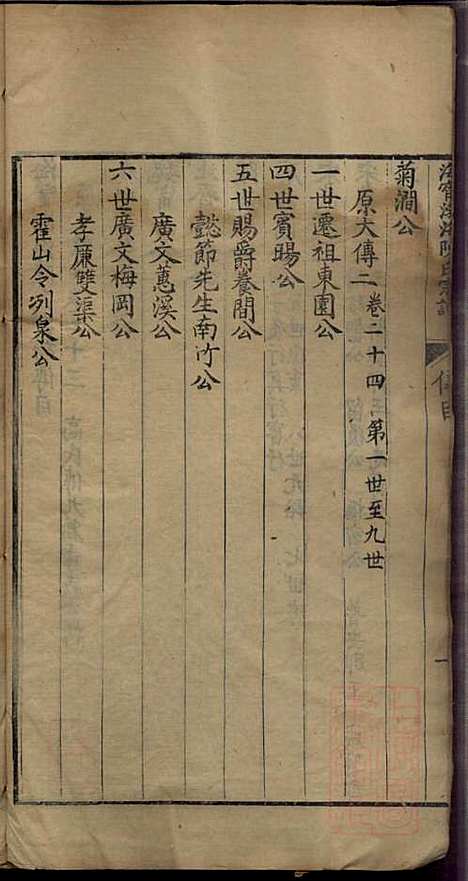 海寧渤海陳氏宗譜 傳目 一
菊澗公
原大傳二 卷二十四 第一世至九世
一世遷祖東園公
四世賓暘公
五世賜爵養閒公
懿節先生南竹公
廣文蕙溪公
六世廣文梅岡公
孝廉雙渠公
霍山令冽泉公